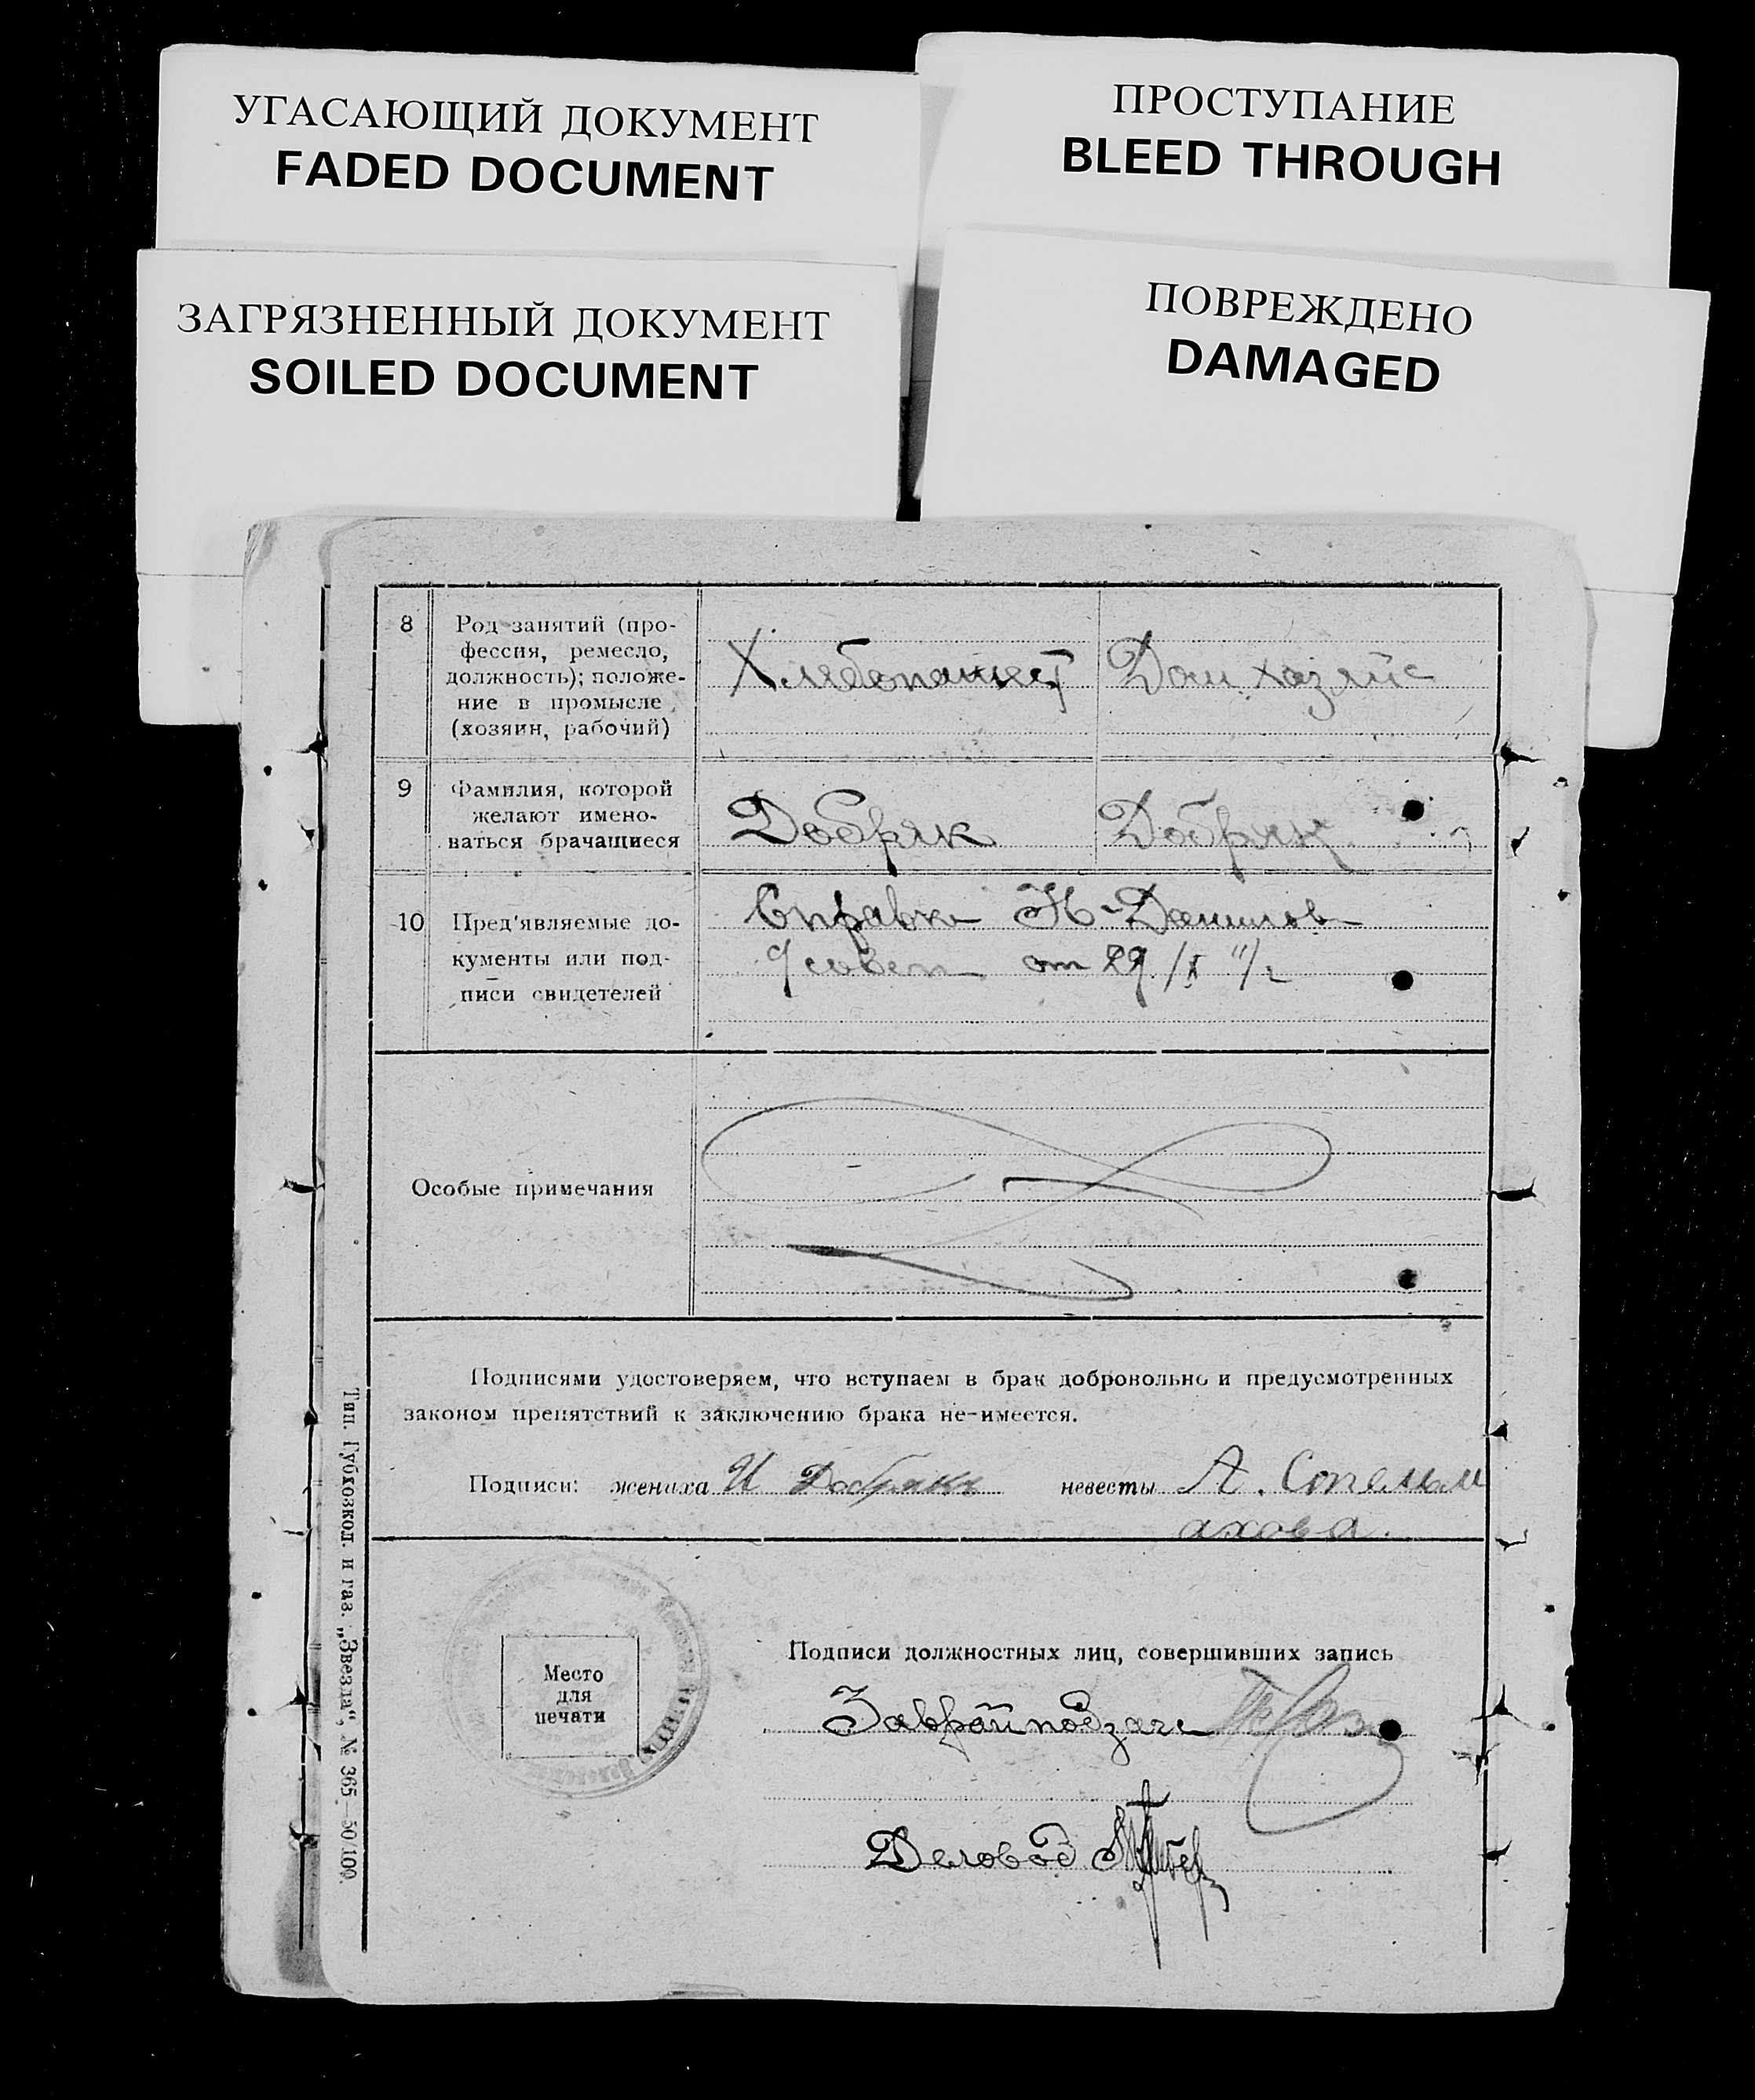 УГАСАЮЩИЙ ДОКУМЕНТ
FADED DOCUMENT
ПРОСТУПАНИЕ
BLEED THROUGH
ЗАГРЯЗНЕННЫЙ ДОКУМЕНТ
SOILED DOCUMENT
ПОВРЕЖДЕНО
DAMAGED
8
Род занятий (про-
фессия, ремесло,
должность); положе-
ние в промысле
(хозяин, рабочий)
Хлебопашец
Дом хозяйс
9
Фамилия, которой
желают имено-
ваться брачащиеся
Добряк
Добряк
10
Пред'являемые до-
кументы или под-
писи свидетелей
Справка Н-Данилов
от 29/X
Особые примечания
Подписями удостоверяем, что вступаем в брак добровольно и предусмотренных
законом препятствий к заключению брака не-имеется.
Подписи: жениха И Добрякъ невесты А. Стельм
ахова.
Место
для
печати
Подписи должностных лиц, совершивших запись
Заврайподзаг
Деловод
Тип. Губхозкол. и газ. „Звезда", № 365—50/100.